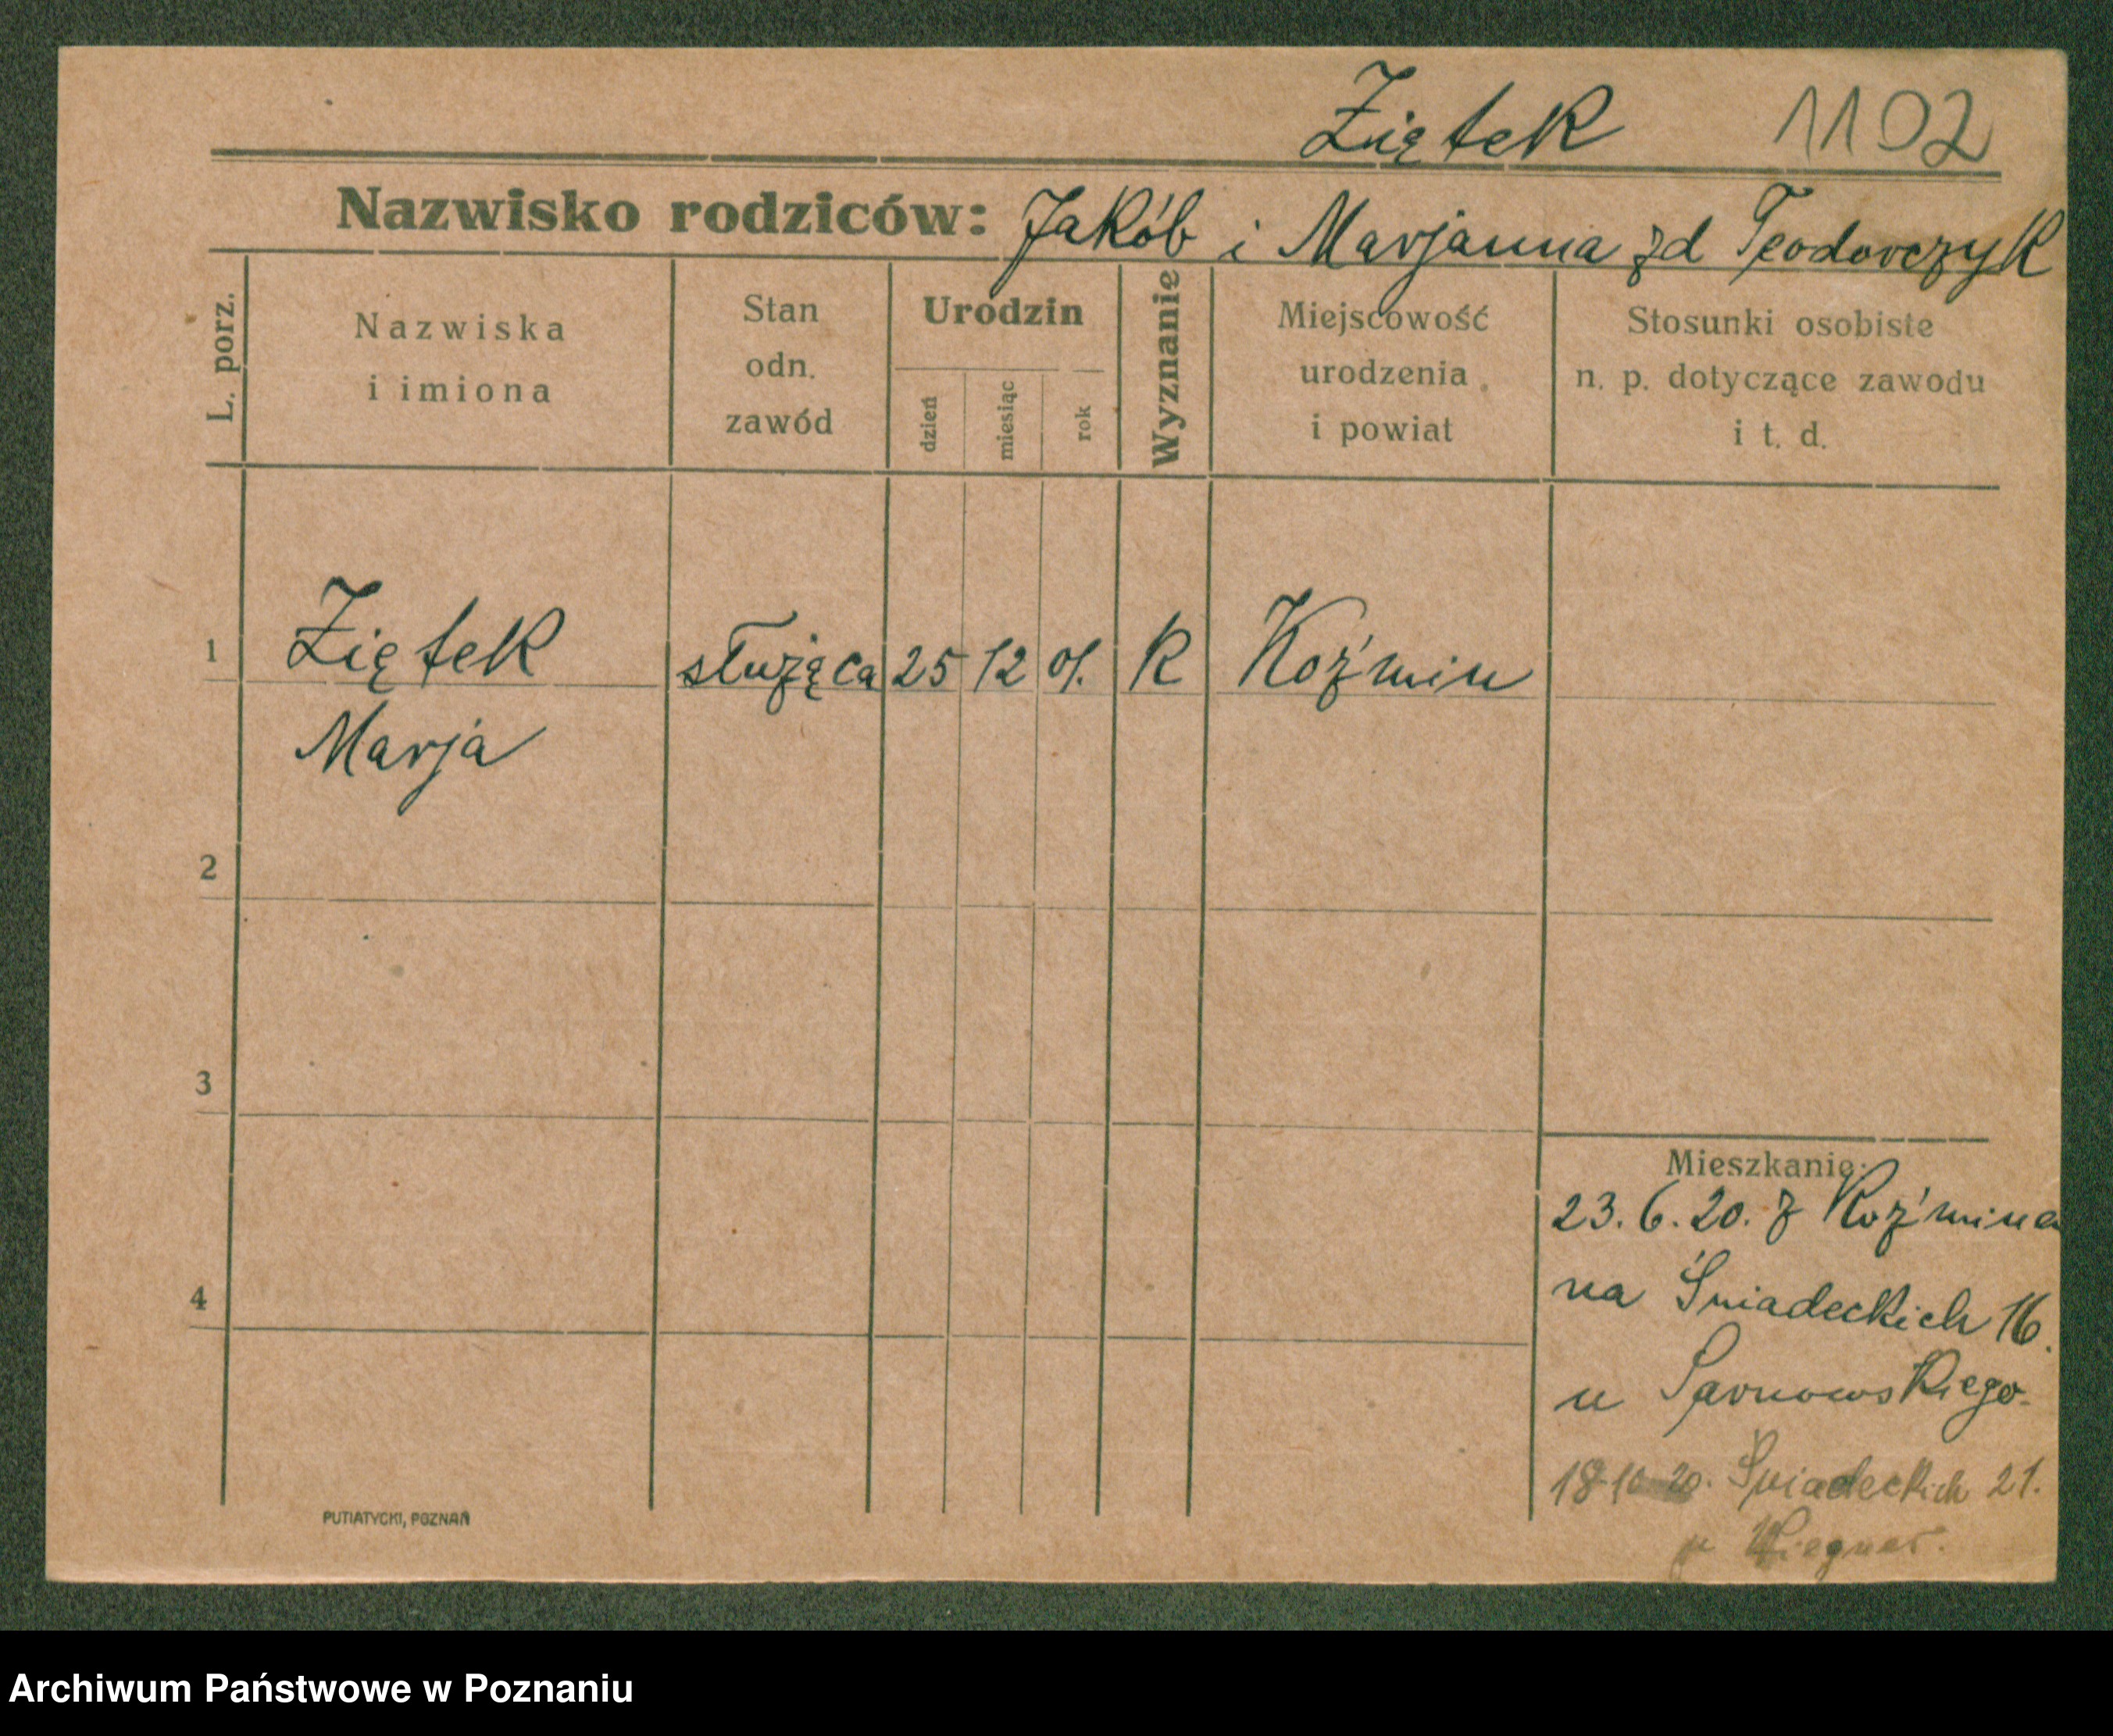 Ziętek 1102
Nazwisko rodziców: Jakób i Marjanna zd Teodorczyk
L. porz.
Nazwiska
i imiona
Stan
odn.
zawód
Urodzin
dzień
miesiąc
rok
Wyznanie
Miejscowość
urodzenia
i powiat
Stosunki osobiste
n. p. dotyczące zawodu
i t. d.
1 Ziętek służąca 25 12 01. K Koźmin
Marja
2
3
4
Mieszkanie:
23. 6. 20. z Koźmina
na Śniadeckich 16.
u Sarnowskiego.
18-10 20. Śniadeckich 21.
u
PUTIATYCKI, POZNAŃ
Archiwum Państwowe w Poznaniu